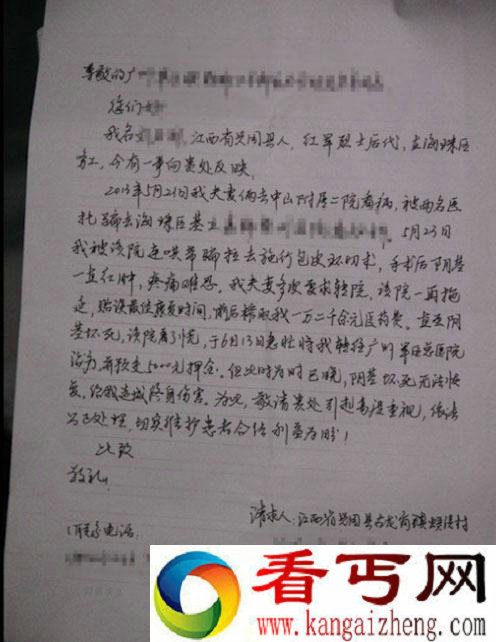 尊敬的广
您们好
我名 江西省兴国县人，红军烈士后代，在海珠区
务工，今有一事向贵处反映。
2013年5月21日我夫妻俩去中山附属二院看病，被两名医
托骗去海珠区基立 5月23日
我被该院连哄带骗拉去施行包皮环切术，手术后阴茎
一直红肿，疼痛难忍。我夫妻多次要求转院，该院一再拖
延，贻误最佳康复时间，前后榨取我一万二千余元医药费。直至阴
茎坏死，该院看了慌，于6月13日急忙将我转往广州军区总医院
治疗，并预交5000元押金。但此时为时已晚，阴茎坏死无法恢
复，给我造成终身伤害。为此，敬请贵处引起高度重视，依法
公正处理，切实维护患者合法利益为盼！
此致
敬礼！
请求人：江西省兴国县古龙岗镇 村
联系电话：
看丐网
www.kangaizheng.com